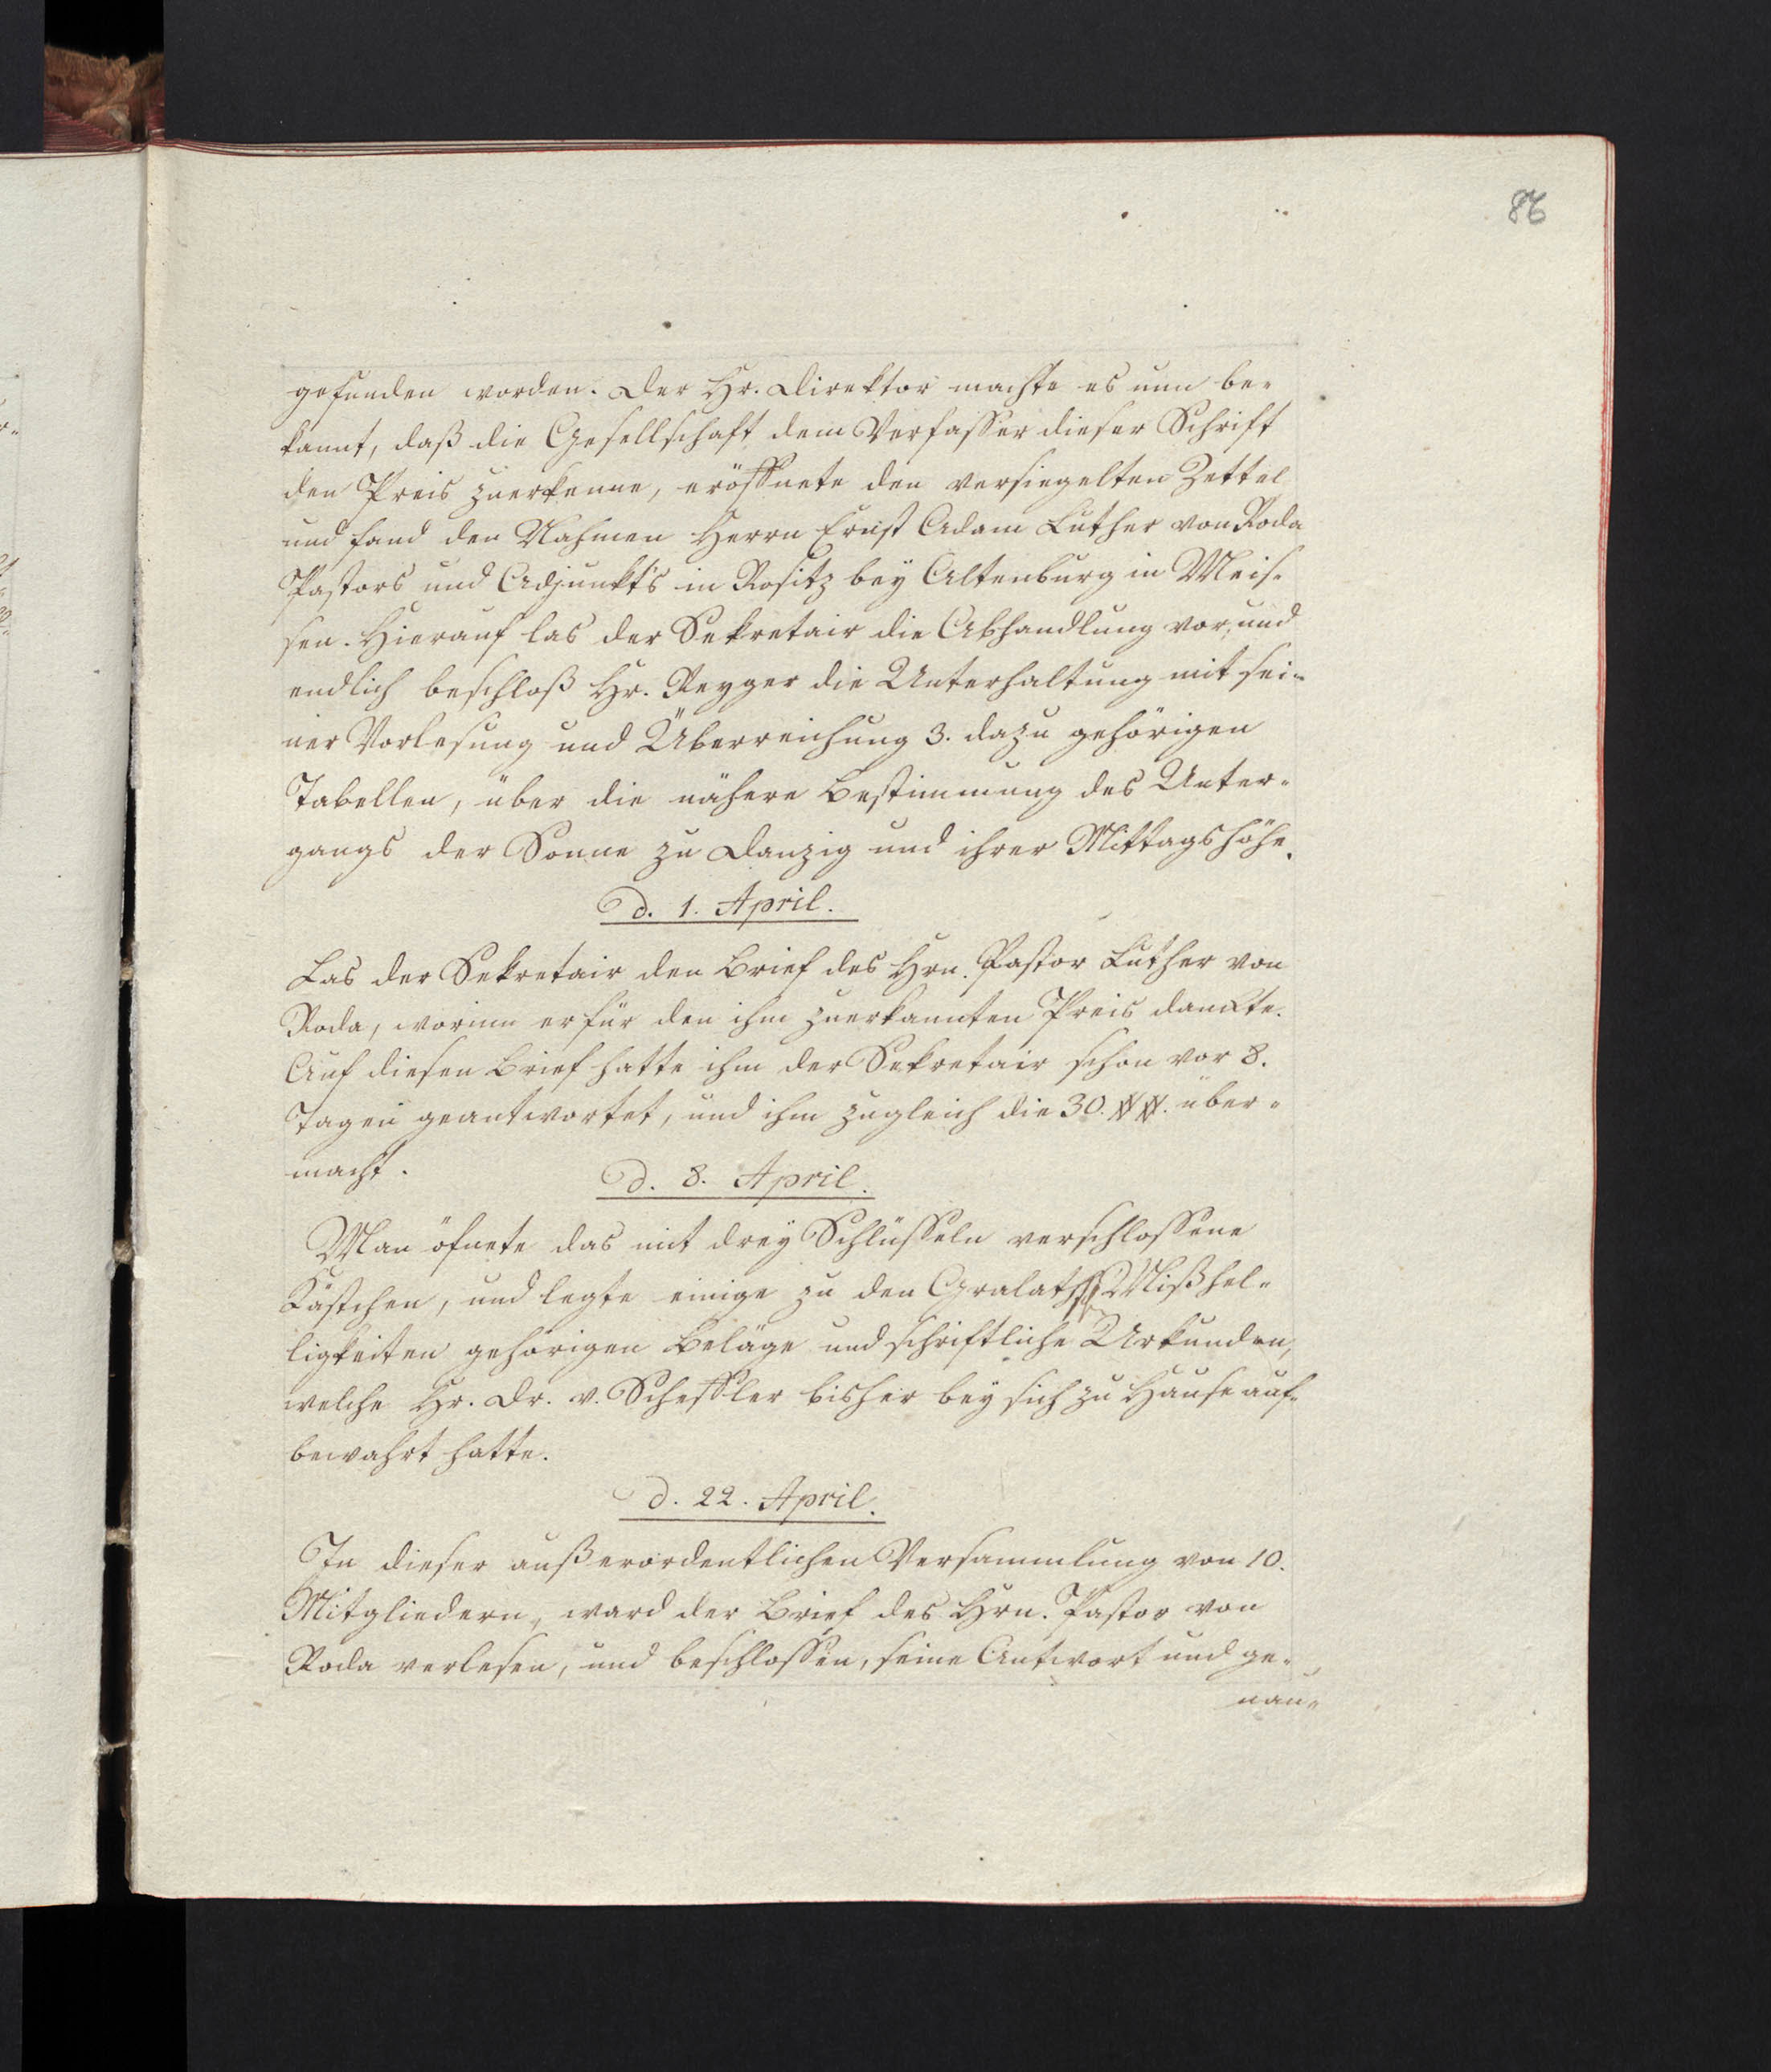 86
gefunden worden. Der Hr. Direktor machte es nun be-
kannt, daß die Gesellschaft dem Verfasser dieser Schrift
den Preis zuerkenne, eröffnete den versiegelten Zettel
und fand den Nahmen Herrn Ernst Adam Luther von Roda
Pastors und Adjunkt's in Rositz bey Altenburg in Meis-
sen. Hierauf las der Sekretair die Abhandlung vor, und
endlich beschloß Hr. Reyger die Unterhaltung mit sei-
ner Vorlesung und Überreichung 3. dazu gehörigen
Tabellen, über die nähere Bestimmung des Unter-
gangs der Sonne zu Danzig und ihrer Mittagshöhe.
d. 1. April.
Las der Sekretair den Brief des Hrn. Pastor Luther von
Roda, worinn er für den ihm zuerkannten Preis dankte.
Auf diesen Brief hatte ihm der Sekretair schon vor 8.
Tagen geantwortet, und ihm zugleich die 30. über-
macht.
d. 8. April.
Man öfnete das mit drey Schlüsseln verschlossene
Kästchen, und legte einige zu den Gralath Mißhel-
ligkeiten gehörigen Beläge und schriftliche Urkunden,
welche Hr. Dr. v. Scheffler bisher bey sich zu Hause auf-
bewahrt hatte.
d. 22. April.
In dieser außerordentlichen Versammlung von 10.
Mitgliedern, ward der Brief des Hrn. Pastor von
Roda verlesen, und beschlossen, seine Antwort und ge-
nau-